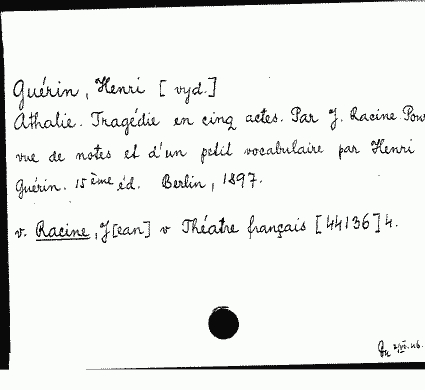 Guérin, Henri [vyd.]
Athalie. Tragédie en cinq actes. Par J. Racine. Pour
vue de notes et d'un petit vocabulaire par Henri
Guérin. 15ème éd. Berlin, 1897.
v. Racine, J[ean] v Théatre français [44136] 4.